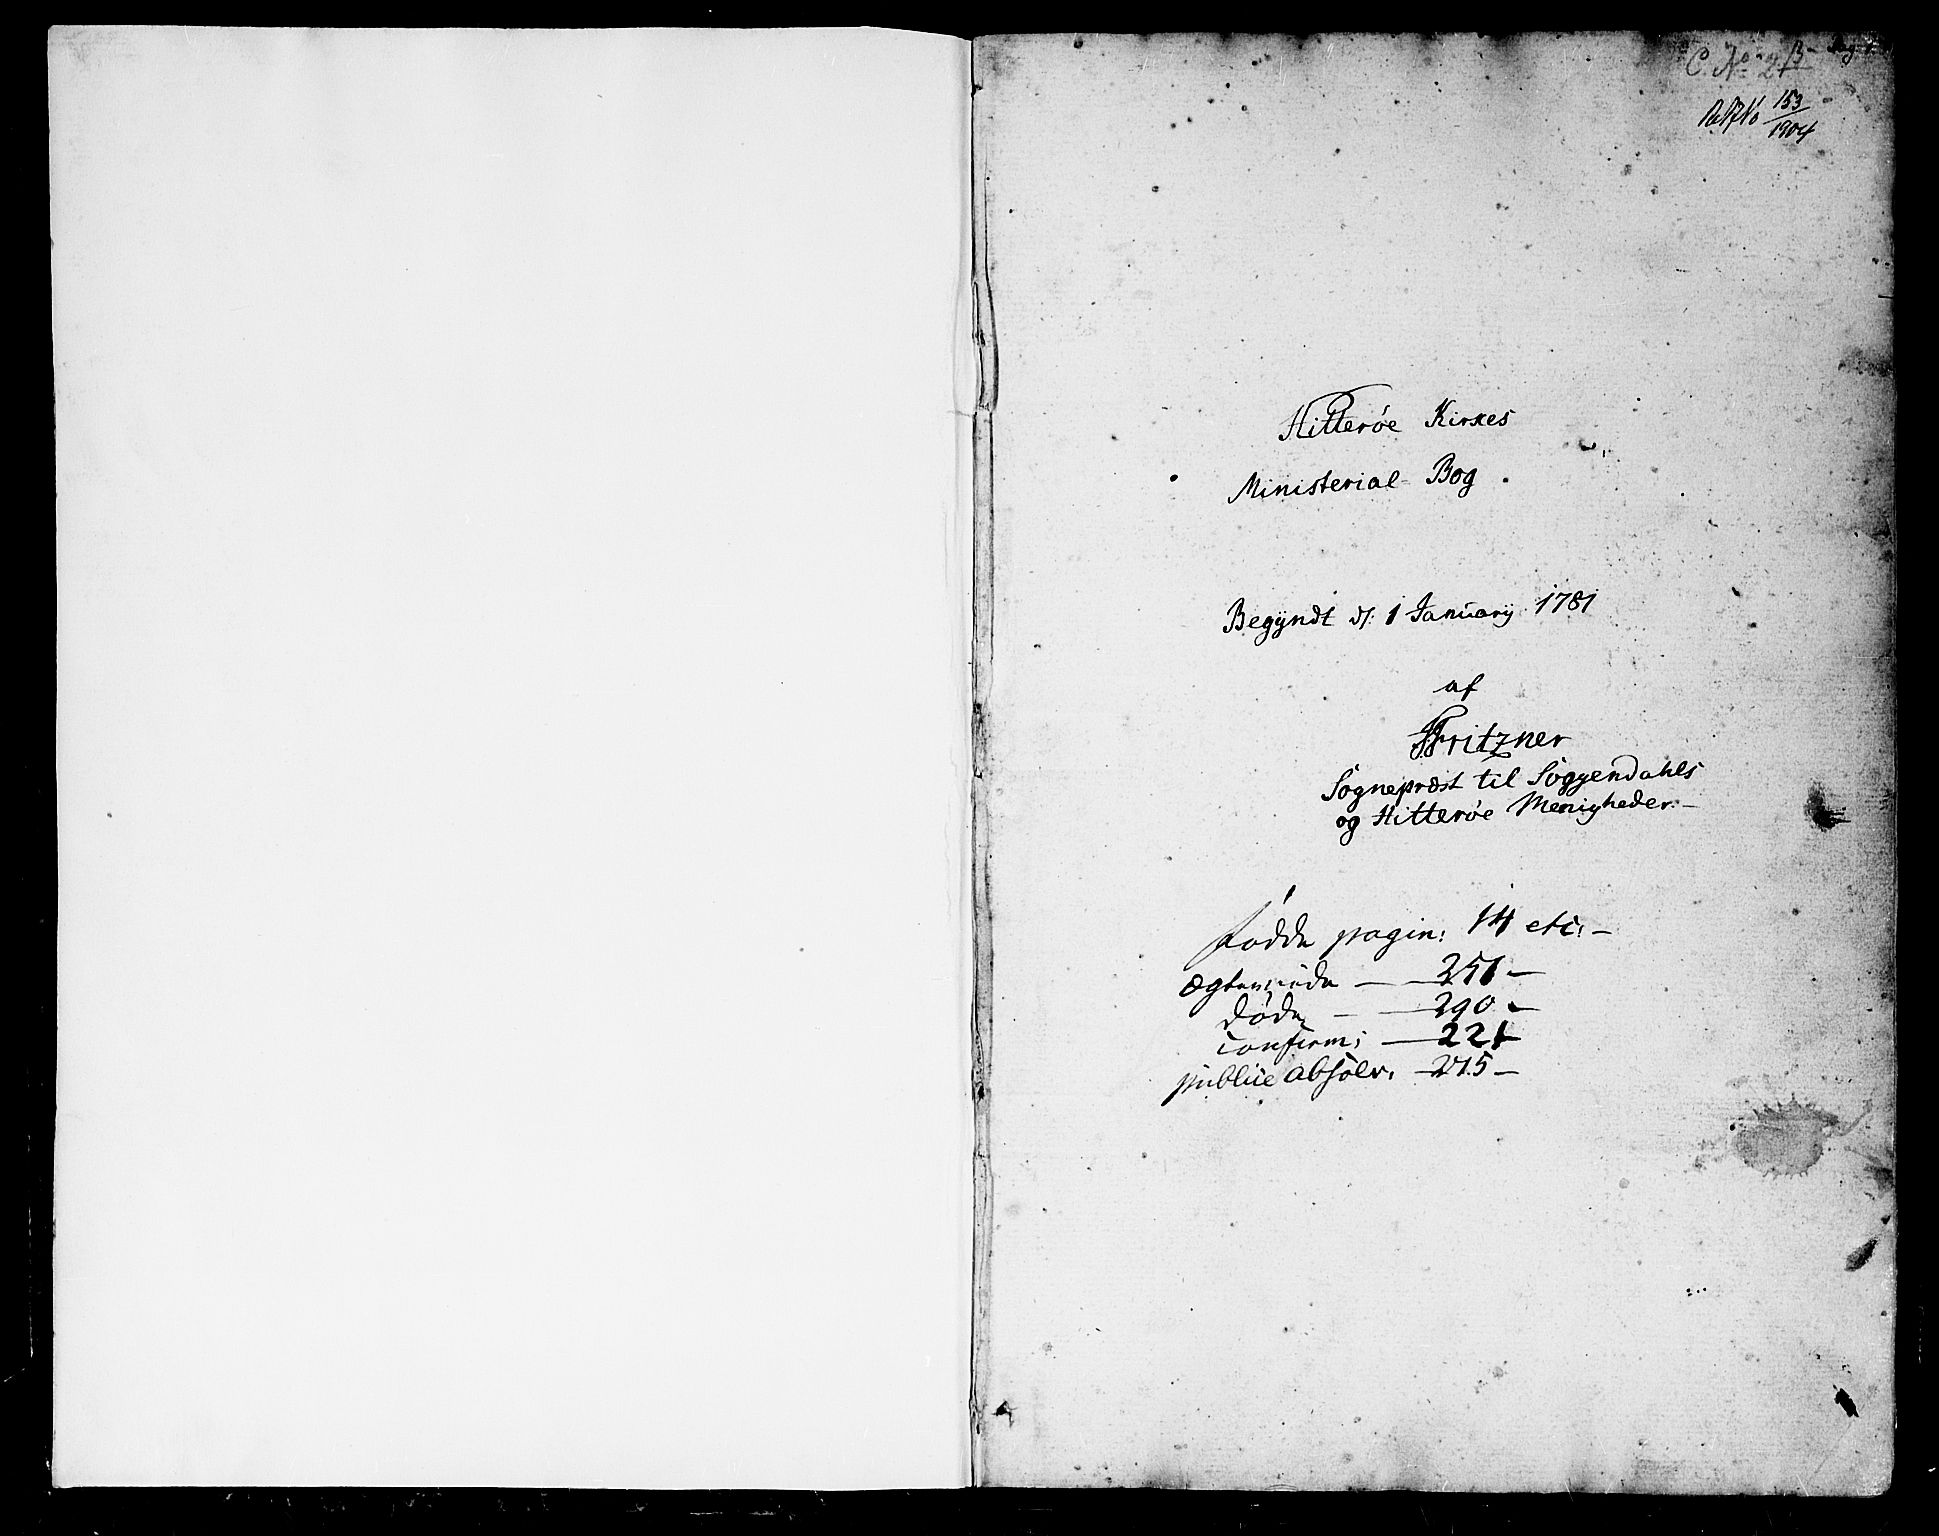 C. No 2
153
1904
Hitterøe Kirkes
Ministerial Bog
Begÿndt d: 1 Januarij 1781
af
Fritzner
Sognepræst til Soggendahls
og Hitterøe Menigheder.—
fødde pagin: 14 etc:—
Ægteviede — 251 —
døde — 290 —
confirm: — 221
publice absolv. 215 —